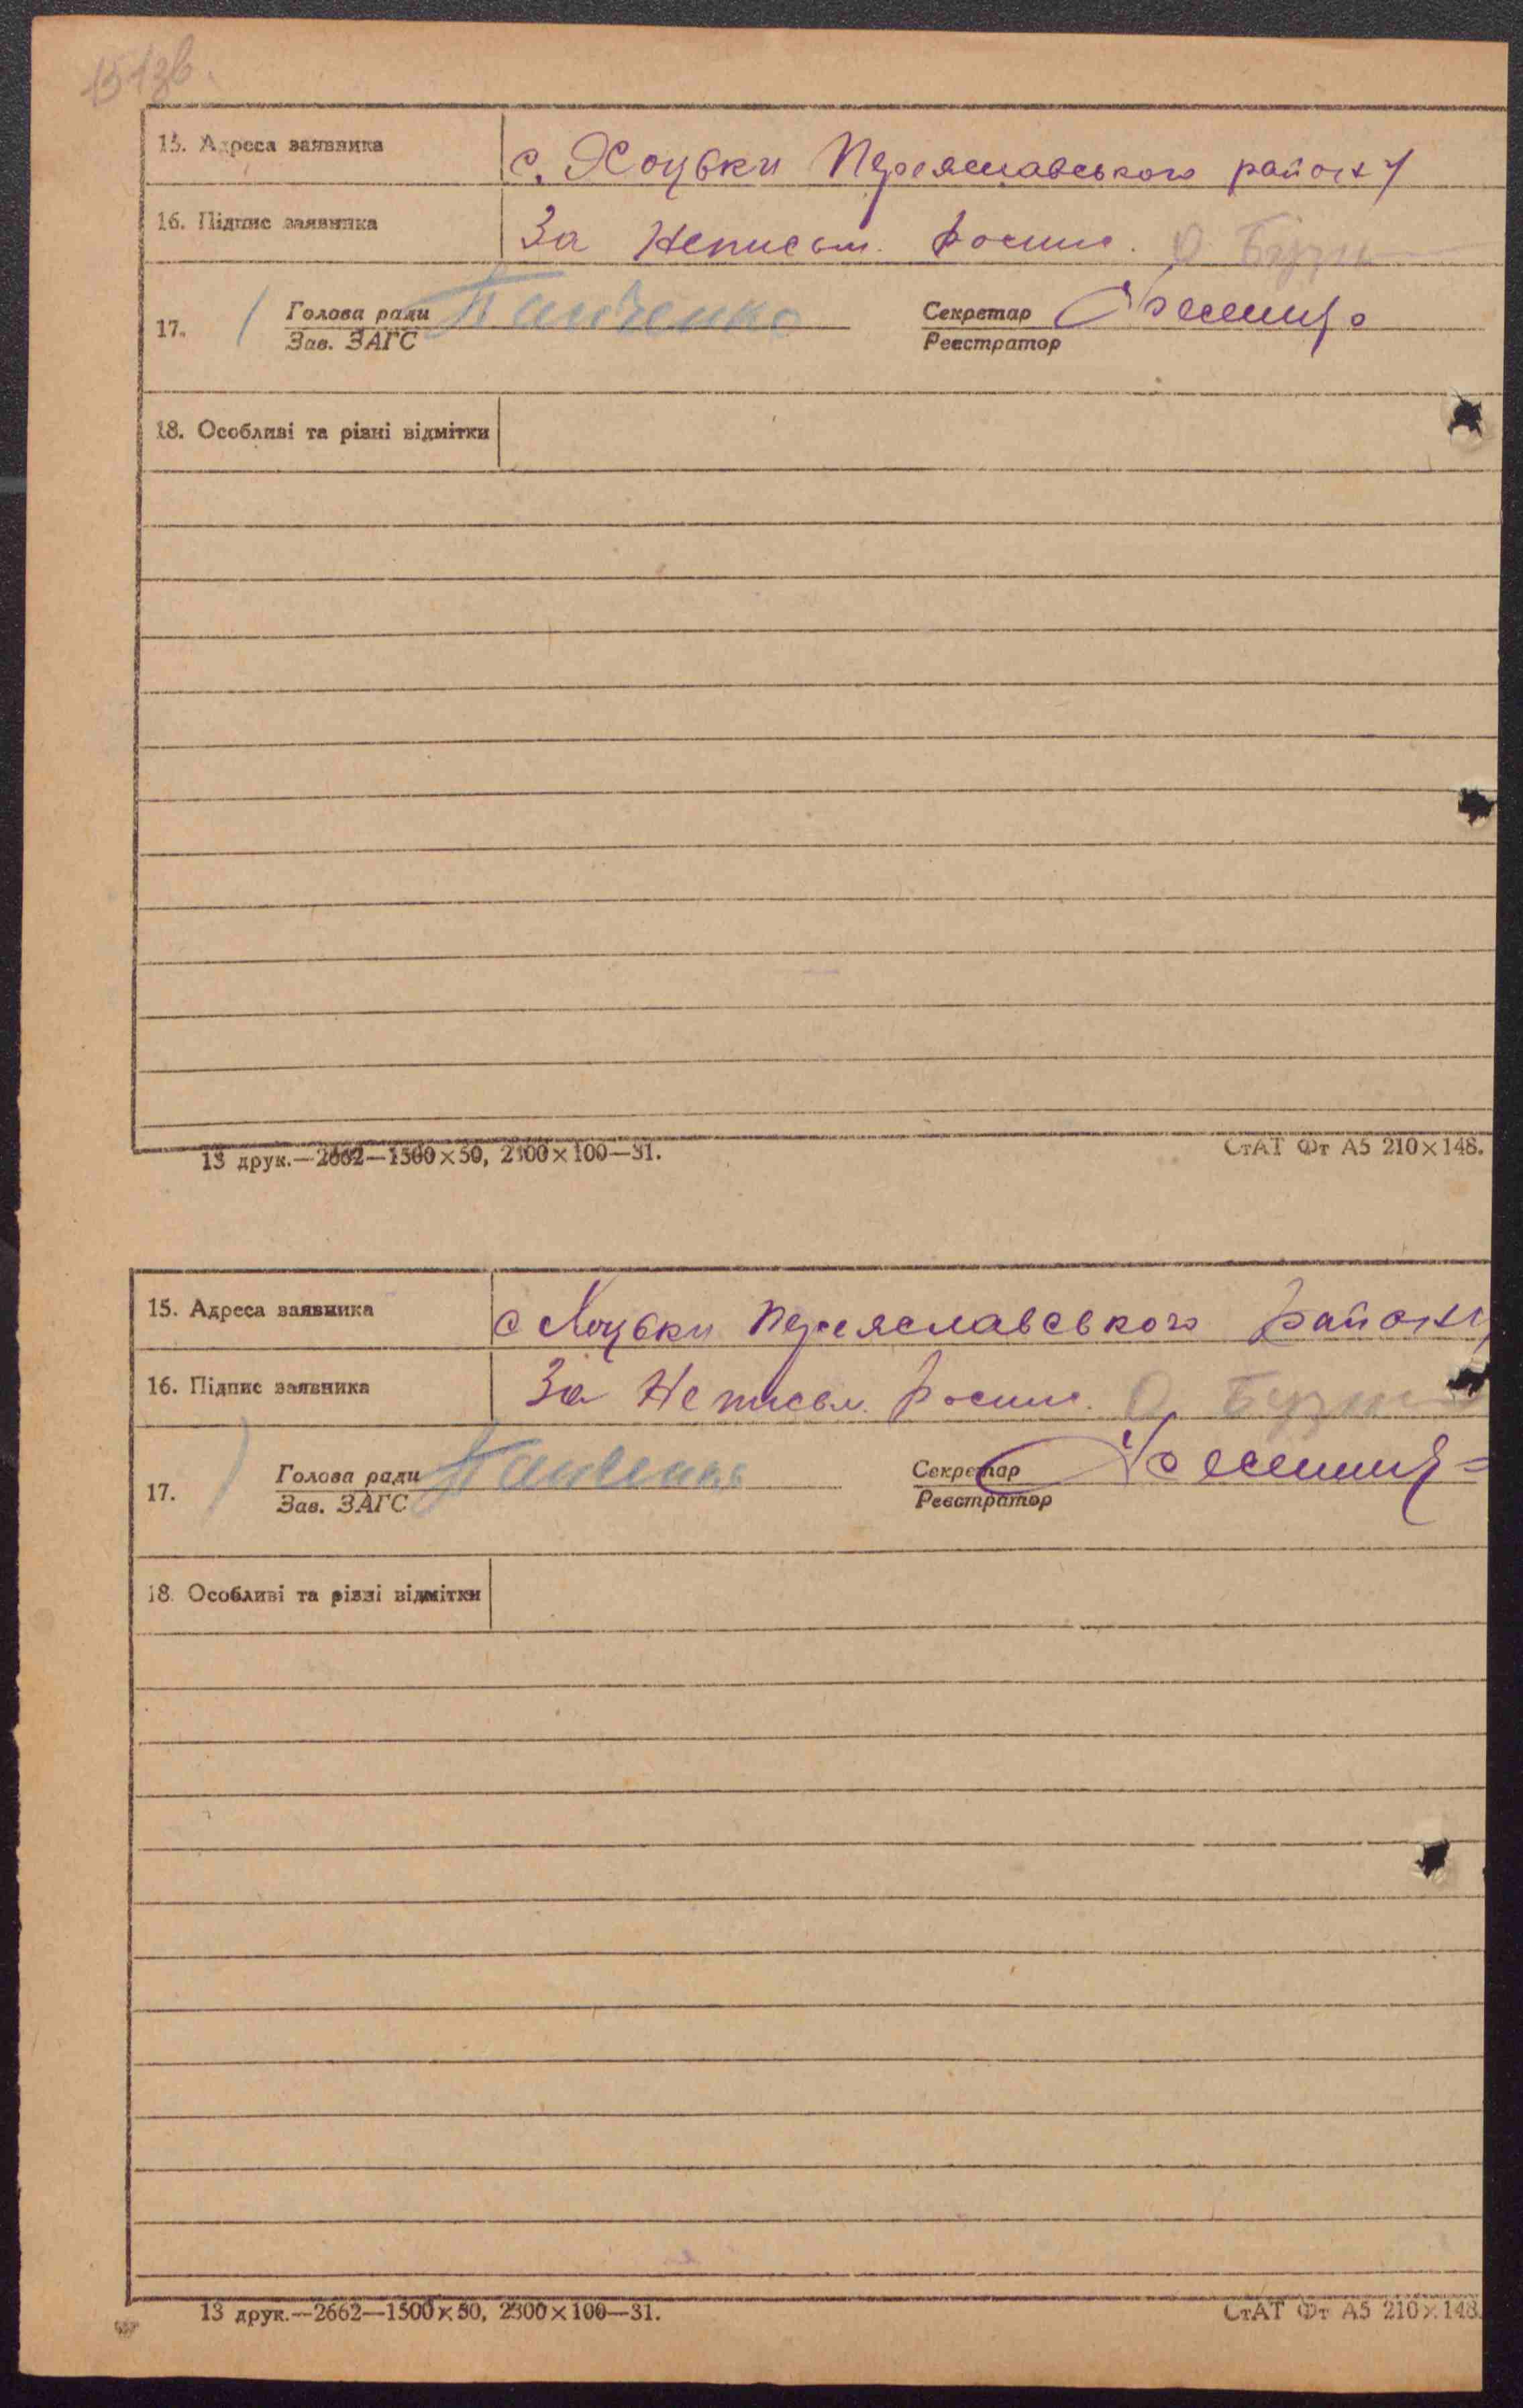 151зв.
15. Адреса заявника с. Хоцьки Переяславського району
16. Підпис заявника За неписьм. роспис. О. Бузи
17. Голова ради Панченко Секретар
Зав. ЗАГС Реєстратор
18. Особливі та різні відмітки
13 друк.—2662—1500×50, 2300×100—31. СтАТ Фт А5 210×148.
15. Адреса заявника с Хоцьки Переяславського району
16. Підпис заявника За неписьм. роспис. О. Бузи
17. Голова ради Панченко Секретар
Зав. ЗАГС Реєстратор
18. Особливі та різні відмітки
13 друк.—2662—1500×50, 2300×100—31. СтАТ Фт А5 210×148.